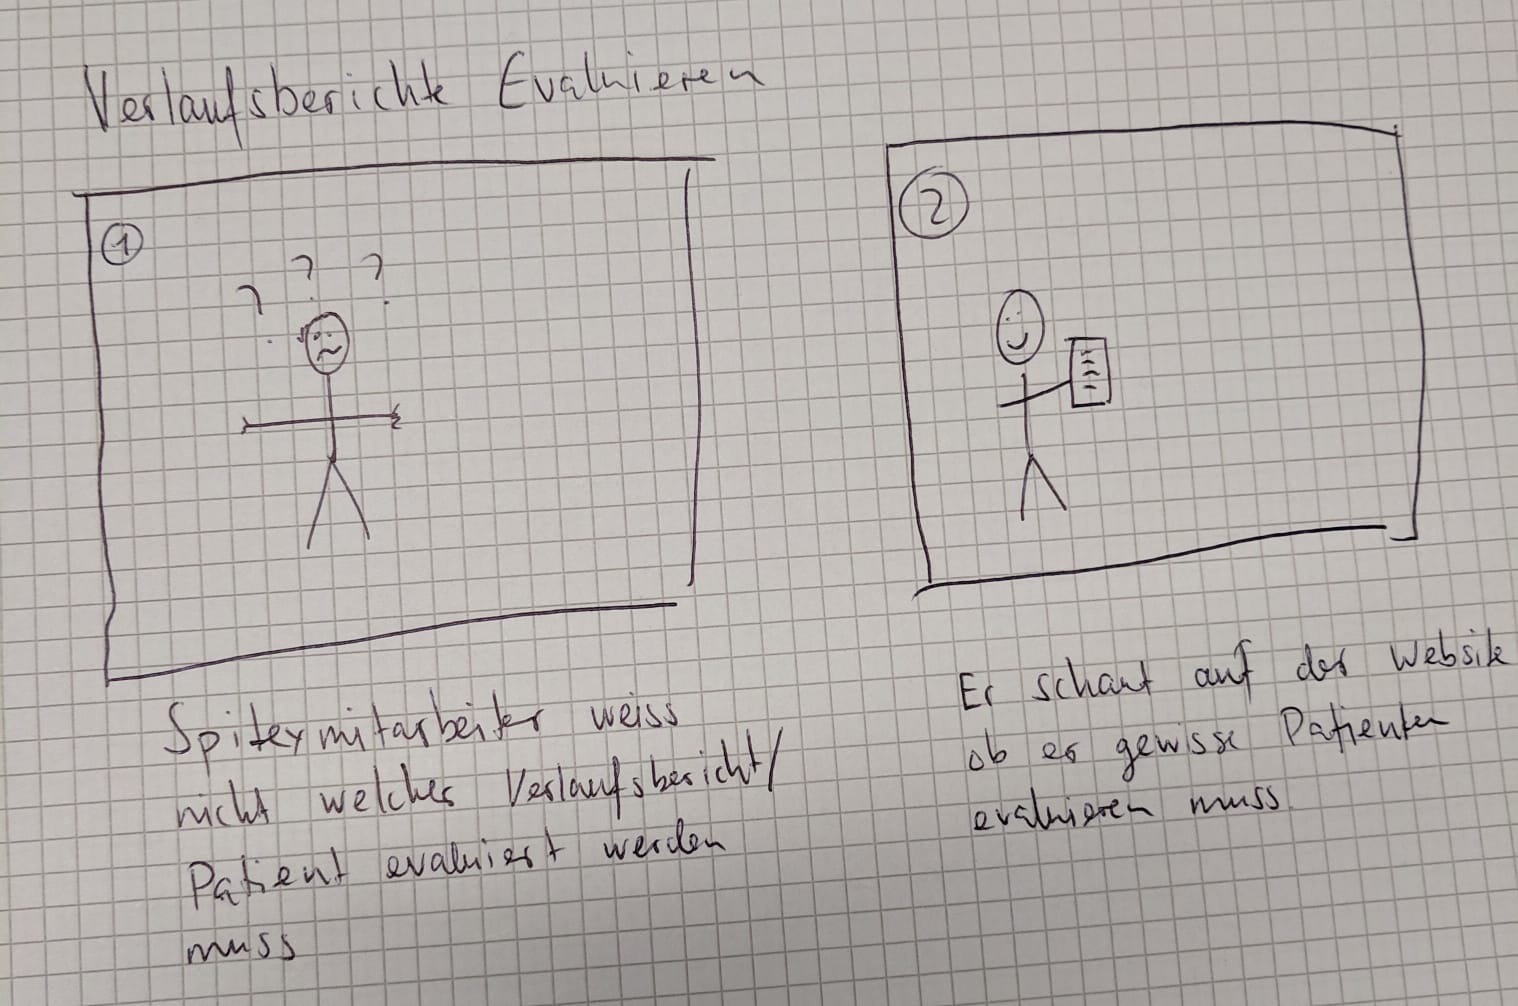 Verlaufsberichte Evaluieren
1
? ? ?
Spitexmitarbeiter weiss
nicht welcher Verlaufsbericht/
Patient evaluiert werden
muss
2
Er schaut auf der Website
ob er gewisse Patienten
evaluieren muss